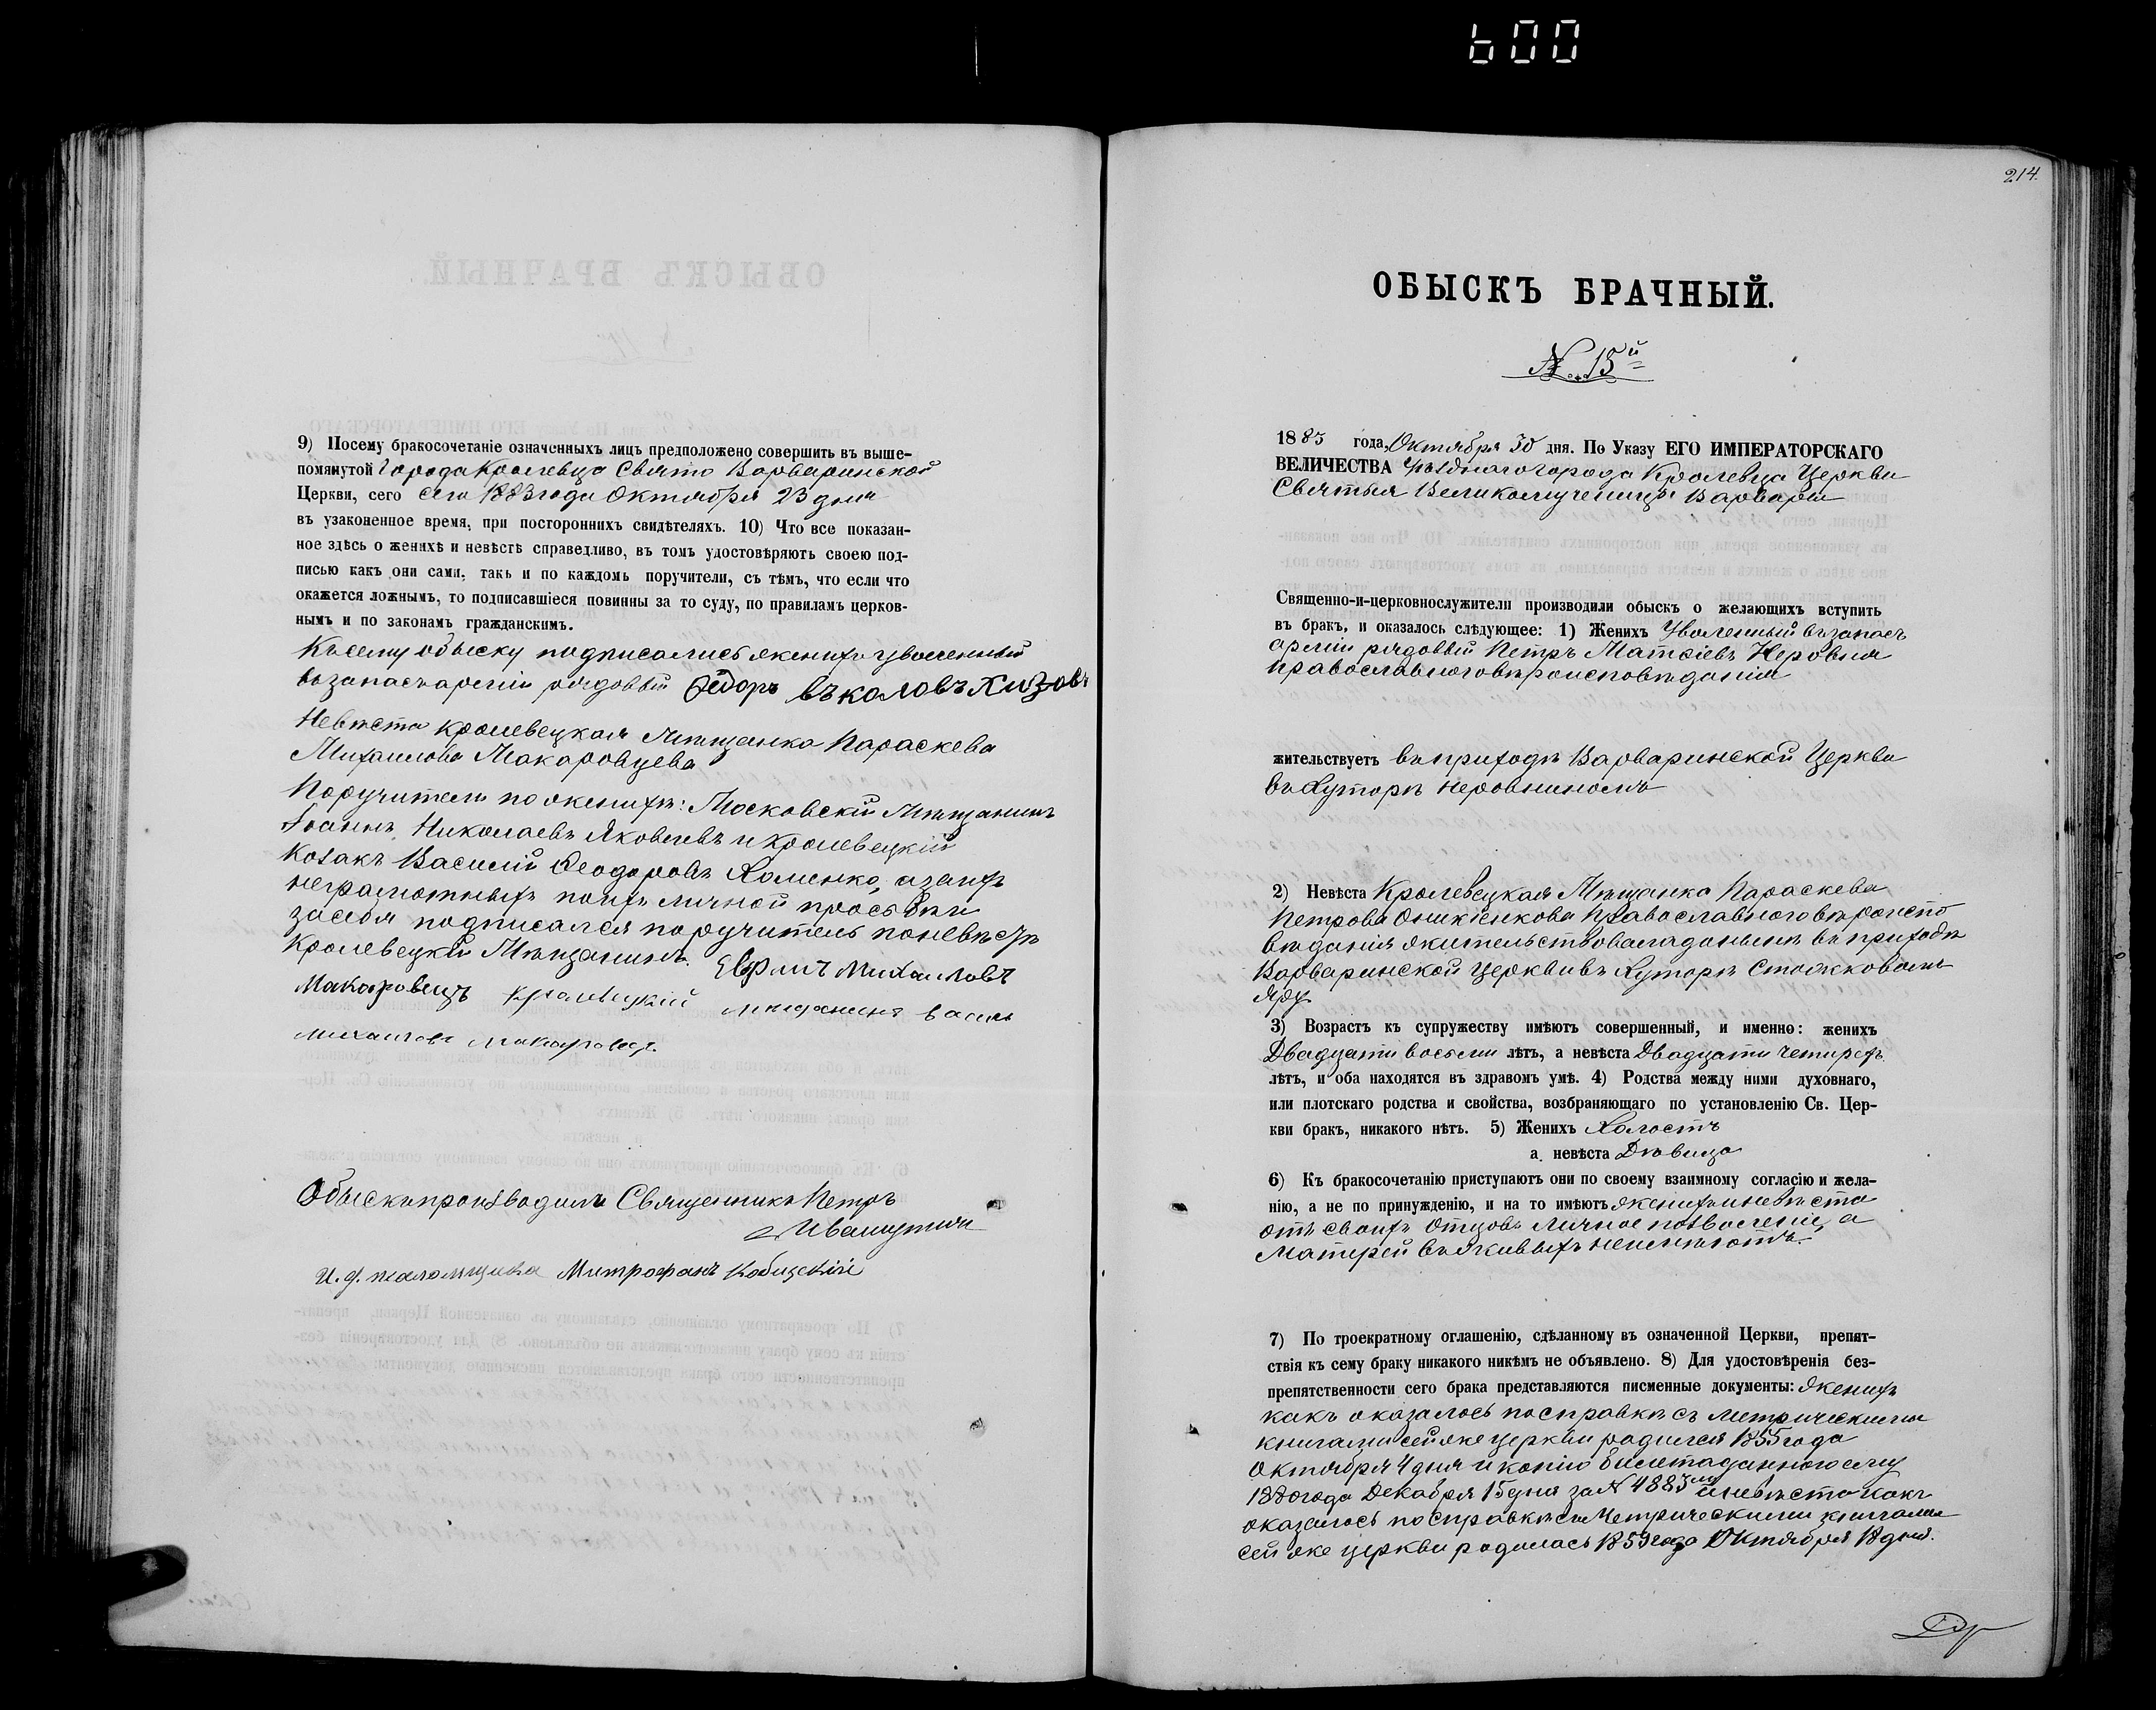 600
9) Посему бракосочетаніе означенныхъ лицъ предположено совершить въ выше-
помянутой Города Кролевца Свято Варваринской
Церкви, сего сего 1883 года Октября 23 дня
въ узаконенное время, при постороннихъ свидѣтеляхъ. 10) Что все показан-
ное здѣсь о женихѣ и невѣстѣ справедливо, въ томъ удостовѣряютъ своею под-
писью какъ они сами, такъ и по каждомъ поручители, съ тѣмъ, что если что
окажется ложнымъ, то подписавшіеся повинны за то суду, по правиламъ церков-
нымъ и по законамъ гражданскимъ.
Къ сему обыску подписались женихъ уволенный
въ запасъ арміи рядовый Федоръ
Невѣста Кролевецкая Мѣщанка Параскева
Михаилова Макаровцева
Поручители по женихѣ: Московскій Мѣщанинъ
Іоаннъ Николаевъ Яковлевъ и Кролевецкій
Козакъ Василій Феодоровъ Хоменко, а за нихъ
неграмотныхъ по ихъ личной просьбѣ и
за себя подписался поручитель по невѣстѣ
Кролевецкій Мѣщанинъ Михаиловъ
Макаровецъ Кролевецкій мещанинъ Василь
Михаиловъ Макаровец.
Обыскъ производилъ Священникъ Петръ
Иваницкій
И. д. псаломщика Митрофанъ
214.
ОБЫСКЪ БРАЧНЫЙ.
N. 15й
1883 года, Октября 30 дня. По Указу ЕГО ИМПЕРАТОРСКАГО
ВЕЛИЧЕСТВА Уѣзднаго города Кролевца Церкви
Святыя Великомученицы Варвары
Священно-и-церковнослужители производили обыскъ о желающихъ вступить
въ бракъ, и оказалось слѣдующее: 1) Женихъ Уволенный въ запасъ
арміи рядовый Петръ Матѳіевъ Неровня
православнаго вѣроисповѣданія
жительствуетъ въ приходѣ Варваринской Церкви
въ Хуторѣ Неровниномъ
2) Невѣста Кролевецкая Мѣщанка Параскева
Петрова Оникіенкова православнаго вѣроиспо
вѣданія жительствовала донынѣ въ приходѣ
Варваринской Церкви въ Хуторѣ Стожковомъ
Яру
3) Возрастъ къ супружеству имѣютъ совершенный, и именно: женихъ
Двадцати восьми лѣтъ, а невѣста Двадцати четырехъ
лѣтъ, и оба находятся въ здравомъ умѣ. 4) Родства между ними духовнаго,
или плотскаго родства и свойства, возбраняющаго по установленію Св. Цер-
кви бракъ, никакого нѣтъ. 5) Женихъ Холостъ
а невѣста Дѣвица
6) Къ бракосочетанію приступаютъ они по своему взаимному согласію и жела-
нію, а не по принужденію, и на то имѣютъ женихъ и невѣста
отъ своихъ Отцовъ личное позволеніе, а
Матерей въ живыхъ неимѣютъ.
7) По троекратному оглашенію, сдѣланному въ означенной Церкви, препят-
ствія къ сему браку никакого никѣмъ не объявлено. 8) Для удостовѣренія без-
препятственности сего брака представляются писменные документы: женихъ
какъ оказалось по справкѣ съ метрическими
книгами сей же церкви родился 1855 года
Октября 4 дня и копію билета даннаго ему
1880 года Декабря 15 дня за N 4883 и невѣста какъ
оказалось по справкѣ съ Метрическими книгами
сей же церкви родилась 1859 года Октября 18 дня.